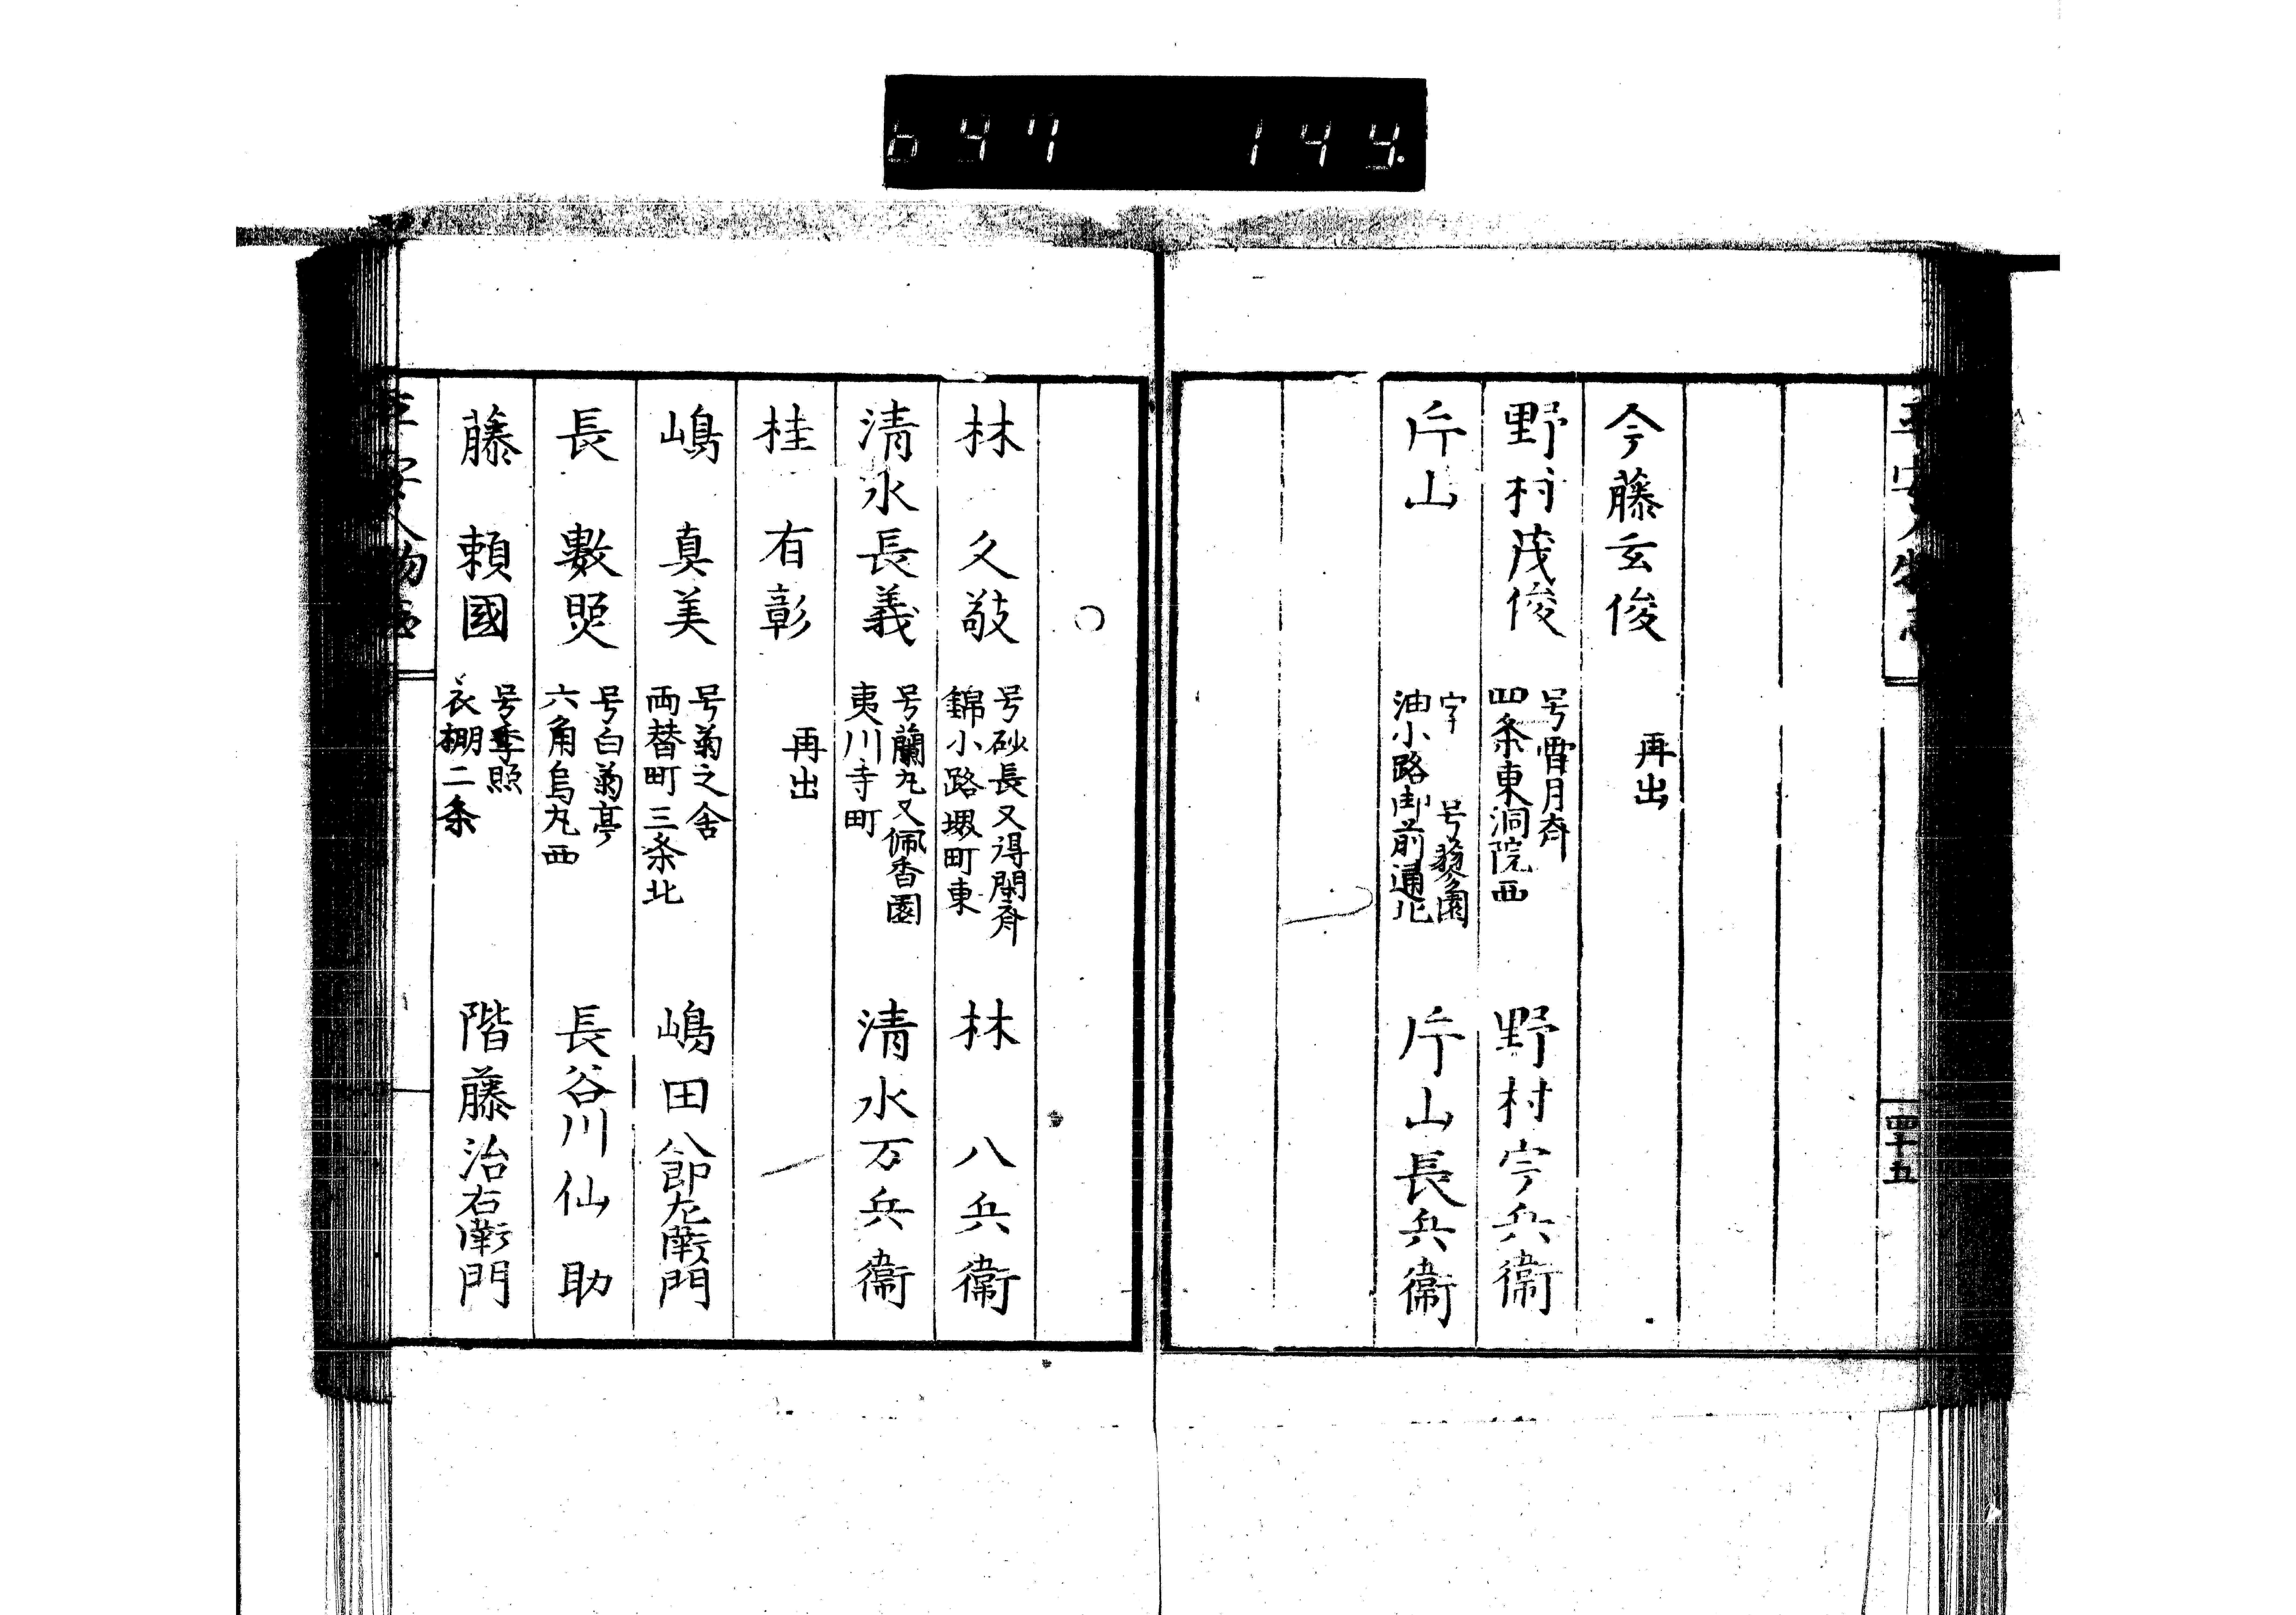 644 144
平安人物志
四十五
今藤玄俊 再出
野村茂俊 号霽月斎 四条東洞院西 野村宇兵衛
片山 字 号藝園 油小路御前通北 片山長兵衛
○
林 久敬 号砂長又得閑斎 錦小路堺町東 林 八兵衛
清水長義 号蘭丸又佩香園 夷川寺町 清水万兵衛
桂 有彰 再出
嶋 真美 号菊之舎 両替町三条北 嶋田八郎左衛門
長 數煚 号白菊亭 六角烏丸西 長谷川仙助
藤 頼國 号季照 衣棚二条 階藤治右衛門
平安人物志